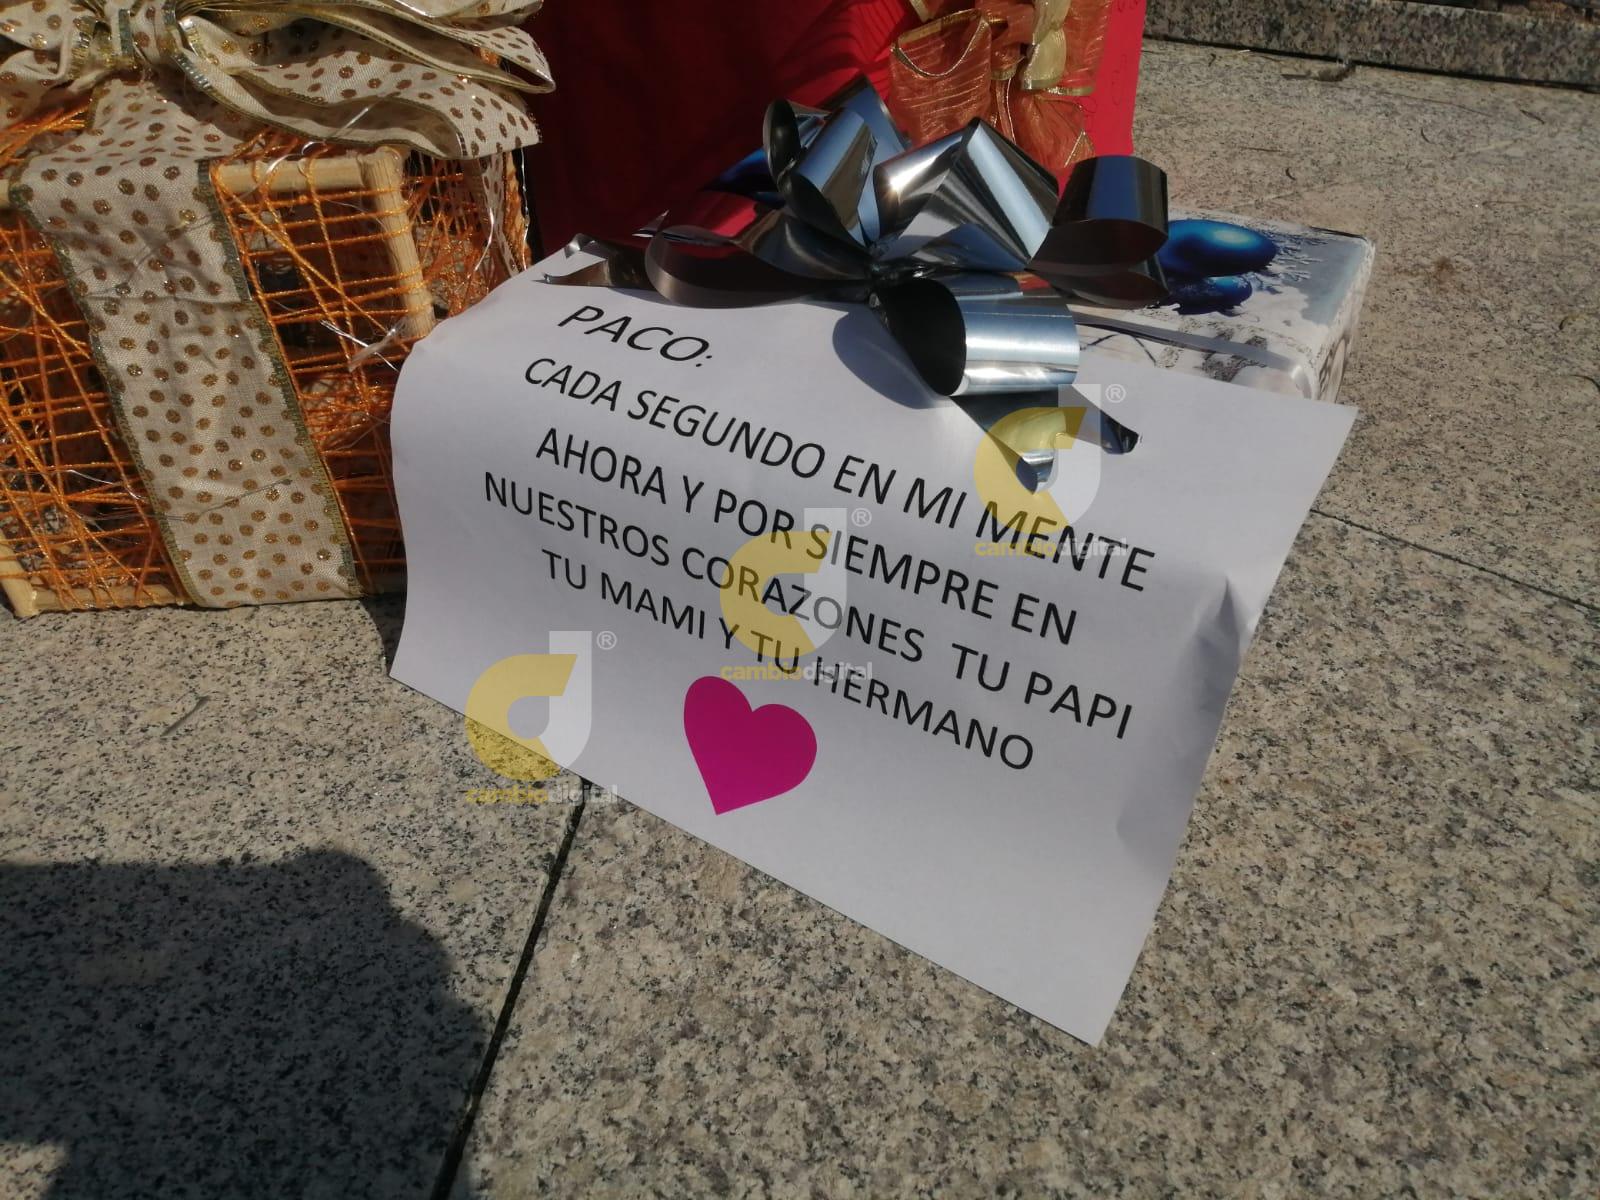 PACO:
CADA SEGUNDO EN MI MENTE
AHORA Y POR SIEMPRE EN
NUESTROS CORAZONES TU PAPI
TU MAMI Y TU HERMANO
cambiodigital
cambiodigital
cambiodigital